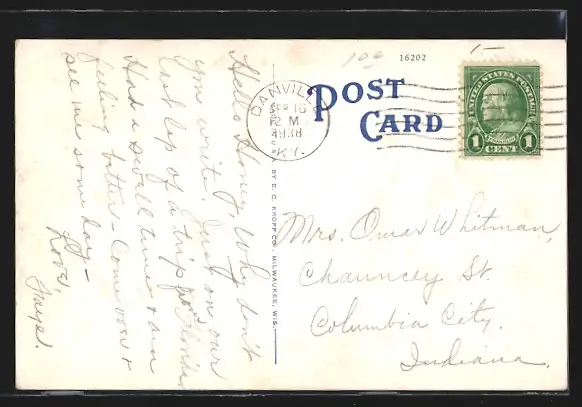 16202
POST
CARD
DANVILLE
SEP 16
12 M
1938
KY.
UNITED STATES POSTAGE
1 1
CENT
BY E. C. KROPP CO., MILWAUKEE, WIS.
Hello Honey, Why don't
you write. Just on our
last lap of a trip from Florida
Had a swell time & am
feeling better - Come over &
see me some day -
Love,
Faye.
Mrs. Omar Whitman,
Chauncey St.
Columbia City,
Indiana.